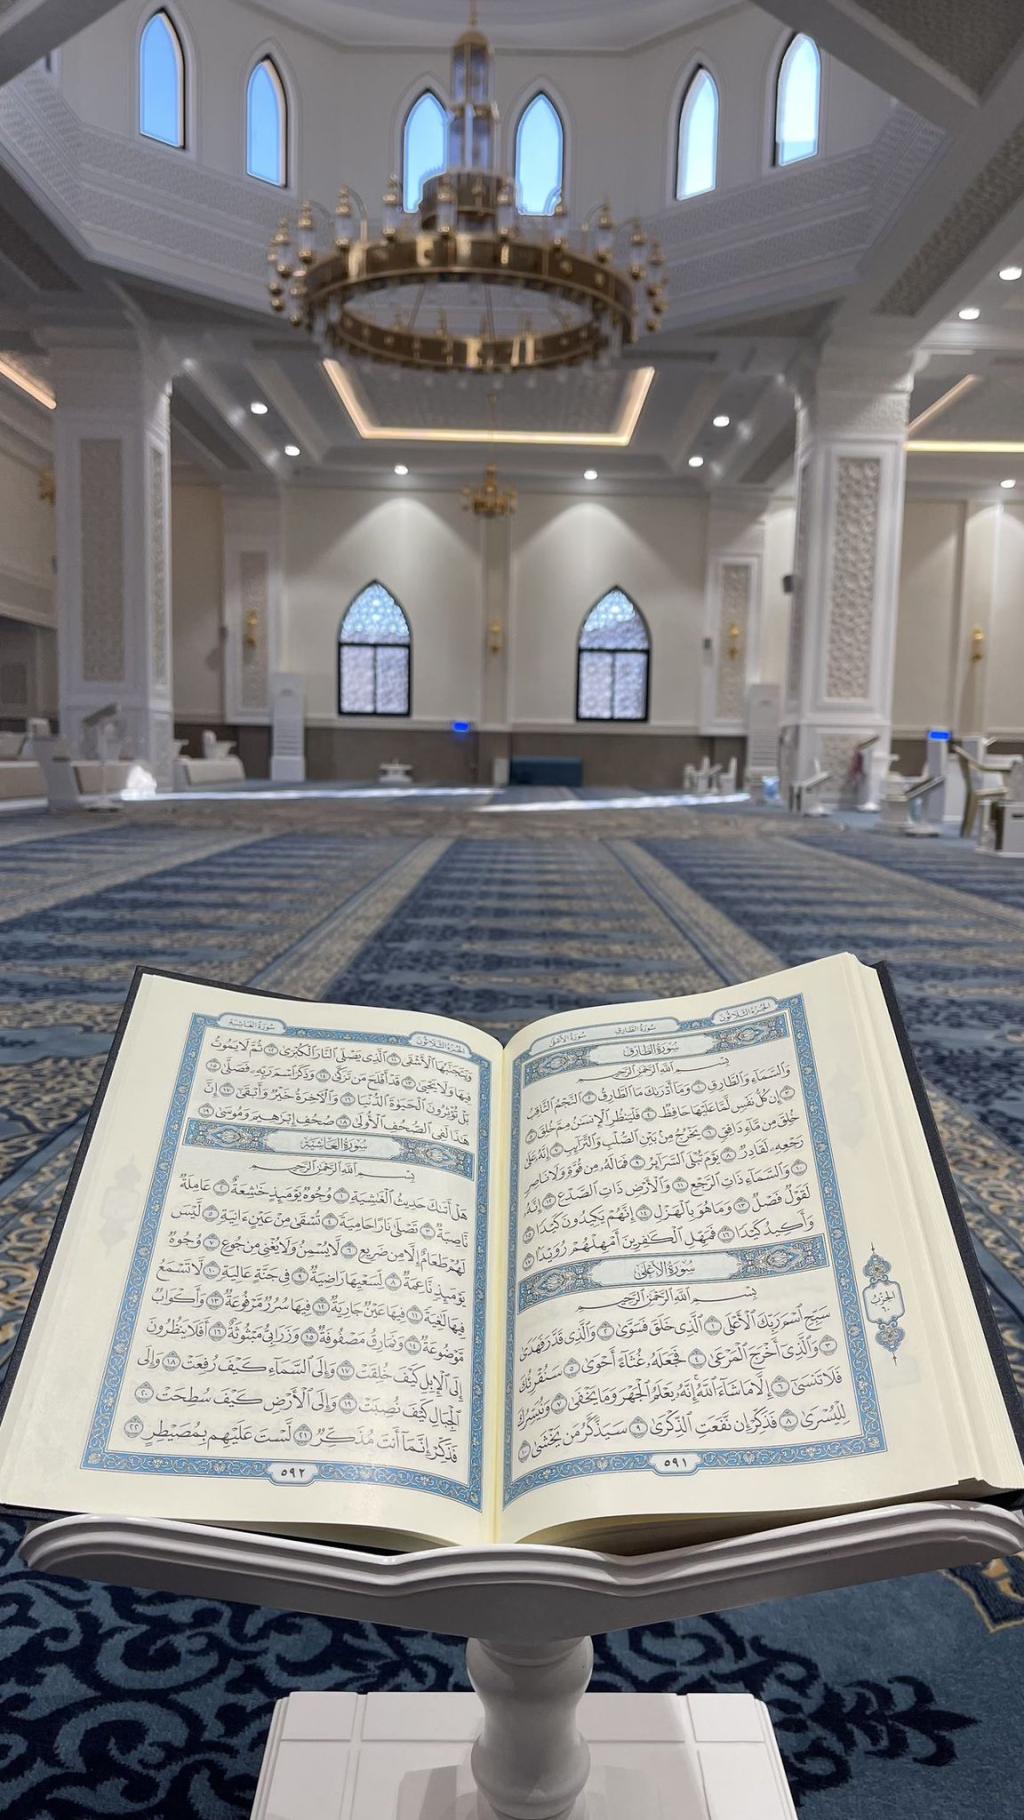 الجُزْءُ الثَّلَاثُونَ سُورَةُ الطَّارِقِ سُورَةُ الأَعْلَى
سُورَةُ الطَّارِقِ
بِسْمِ ٱللَّهِ ٱلرَّحْمَٰنِ ٱلرَّحِيمِ
وَٱلسَّمَآءِ وَٱلطَّارِقِ ١ وَمَآ أَدْرَىٰكَ مَا ٱلطَّارِقُ ٢ ٱلنَّجْمُ ٱلثَّاقِبُ
٣ إِن كُلُّ نَفْسٍ لَّمَّا عَلَيْهَا حَافِظٌ ٤ فَلْيَنظُرِ ٱلْإِنسَٰنُ مِمَّ خُلِقَ ٥
خُلِقَ مِن مَّآءٍ دَافِقٍ ٦ يَخْرُجُ مِنۢ بَيْنِ ٱلصُّلْبِ وَٱلتَّرَآئِبِ ٧ إِنَّهُۥ عَلَىٰ
رَجْعِهِۦ لَقَادِرٌ ٨ يَوْمَ تُبْلَى ٱلسَّرَآئِرُ ٩ فَمَا لَهُۥ مِن قُوَّةٍ وَلَا نَاصِرٍ
١٠ وَٱلسَّمَآءِ ذَاتِ ٱلرَّجْعِ ١١ وَٱلْأَرْضِ ذَاتِ ٱلصَّدْعِ ١٢ إِنَّهُۥ
لَقَوْلٌ فَصْلٌ ١٣ وَمَا هُوَ بِٱلْهَزْلِ ١٤ إِنَّهُمْ يَكِيدُونَ كَيْدًا ١٥
وَأَكِيدُ كَيْدًا ١٦ فَمَهِّلِ ٱلْكَٰفِرِينَ أَمْهِلْهُمْ رُوَيْدًۢا ١٧
سُورَةُ الأَعْلَى
بِسْمِ ٱللَّهِ ٱلرَّحْمَٰنِ ٱلرَّحِيمِ
سَبِّحِ ٱسْمَ رَبِّكَ ٱلْأَعْلَى ١ ٱلَّذِى خَلَقَ فَسَوَّىٰ ٢ وَٱلَّذِى قَدَّرَ فَهَدَىٰ
٣ وَٱلَّذِىٓ أَخْرَجَ ٱلْمَرْعَىٰ ٤ فَجَعَلَهُۥ غُثَآءً أَحْوَىٰ ٥ سَنُقْرِئُكَ
فَلَا تَنسَىٰٓ ٦ إِلَّا مَا شَآءَ ٱللَّهُ إِنَّهُۥ يَعْلَمُ ٱلْجَهْرَ وَمَا يَخْفَىٰ ٧ وَنُيَسِّرُكَ
لِلْيُسْرَىٰ ٨ فَذَكِّرْ إِن نَّفَعَتِ ٱلذِّكْرَىٰ ٩ سَيَذَّكَّرُ مَن يَخْشَىٰ ١٠
الحِزْبُ
٦٠
٥٩١
الجُزْءُ الثَّلَاثُونَ سُورَةُ الغَاشِيَةِ
وَيَتَجَنَّبُهَا ٱلْأَشْقَى ١١ ٱلَّذِى يَصْلَى ٱلنَّارَ ٱلْكُبْرَىٰ ١٢ ثُمَّ لَا يَمُوتُ
فِيهَا وَلَا يَحْيَىٰ ١٣ قَدْ أَفْلَحَ مَن تَزَكَّىٰ ١٤ وَذَكَرَ ٱسْمَ رَبِّهِۦ فَصَلَّىٰ ١٥
بَلْ تُؤْثِرُونَ ٱلْحَيَوٰةَ ٱلدُّنْيَا ١٦ وَٱلْأَخِرَةُ خَيْرٌ وَأَبْقَىٰٓ ١٧ إِنَّ
هَٰذَا لَفِى ٱلصُّحُفِ ٱلْأُولَىٰ ١٨ صُحُفِ إِبْرَٰهِيمَ وَمُوسَىٰ ١٩
سُورَةُ الغَاشِيَةِ
بِسْمِ ٱللَّهِ ٱلرَّحْمَٰنِ ٱلرَّحِيمِ
هَلْ أَتَىٰكَ حَدِيثُ ٱلْغَٰشِيَةِ ١ وُجُوهٌ يَوْمَئِذٍ خَٰشِعَةٌ ٢ عَامِلَةٌ
نَّاصِبَةٌ ٣ تَصْلَىٰ نَارًا حَامِيَةً ٤ تُسْقَىٰ مِنْ عَيْنٍ ءَانِيَةٍ ٥ لَّيْسَ
لَهُمْ طَعَامٌ إِلَّا مِن ضَرِيعٍ ٦ لَّا يُسْمِنُ وَلَا يُغْنِى مِن جُوعٍ ٧ وُجُوهٌ
يَوْمَئِذٍ نَّاعِمَةٌ ٨ لِّسَعْيِهَا رَاضِيَةٌ ٩ فِى جَنَّةٍ عَالِيَةٍ ١٠ لَّا تَسْمَعُ
فِيهَا لَٰغِيَةً ١١ فِيهَا عَيْنٌ جَارِيَةٌ ١٢ فِيهَا سُرُرٌ مَّرْفُوعَةٌ ١٣ وَأَكْوَابٌ
مَّوْضُوعَةٌ ١٤ وَنَمَارِقُ مَصْفُوفَةٌ ١٥ وَزَرَابِىُّ مَبْثُوثَةٌ ١٦ أَفَلَا يَنظُرُونَ
إِلَى ٱلْإِبِلِ كَيْفَ خُلِقَتْ ١٧ وَإِلَى ٱلسَّمَآءِ كَيْفَ رُفِعَتْ ١٨ وَإِلَى
ٱلْجِبَالِ كَيْفَ نُصِبَتْ ١٩ وَإِلَى ٱلْأَرْضِ كَيْفَ سُطِحَتْ ٢٠
فَذَكِّرْ إِنَّمَآ أَنتَ مُذَكِّرٌ ٢١ لَّسْتَ عَلَيْهِم بِمُصَيْطِرٍ ٢٢
٥٩٢